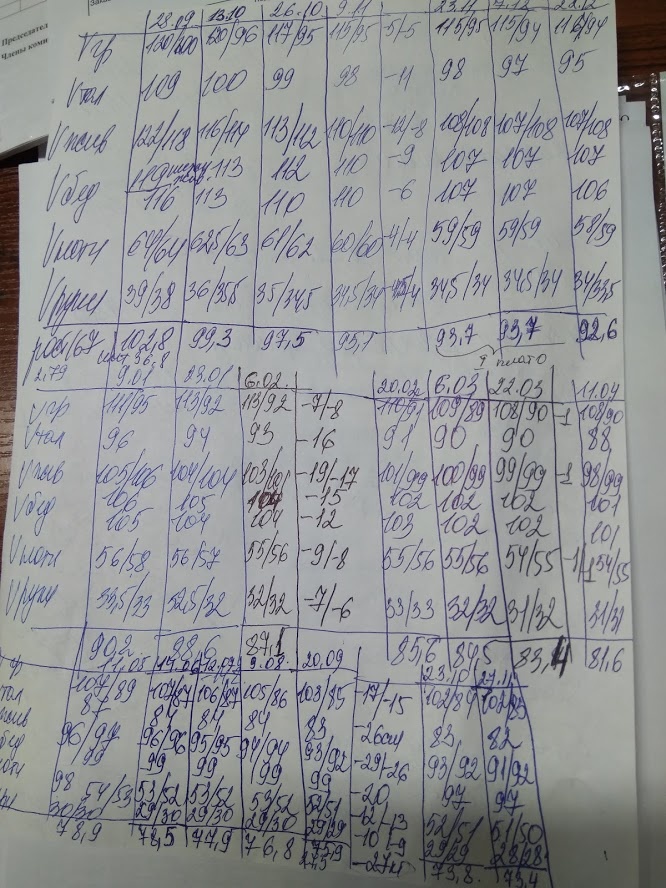 Председател
Члены коми
28.09 13.10 26.10 9.11 23.11 7.12 22.12
Vгр 120/100 120/96 117/95 115/95 -5/-5 115/95 115/94 116/94
Vтал 109 100 99 98 -11 98 97 95
Vжив 122/118 116/114 113/112 110/110 -12/-8 108/108 107/108 107/108
113 112 110 -9 107 107 107
Vбед 116 113 110 110 -6 107 107 106
Vноги 64/64 62,5/63 61/62 60/60 -4/-4 59/59 59/59 58/59
Vруки 39/38 36/35,5 35/34,5 34,5/34 34,5/34 34,5/34 34/33,5
рост 167 102,8 99,3 97,5 95,7 93,7 93,7 92,6
36,8 плато
2.79 9.01 23.01 6.02. 20.02 6.03 22.03 11.04
Vгр 111/95 113/92 113/92 -7/-8 110/91 109/89 108/90 -1 108/90
Vтал 96 94 93 -16 91 90 90 88
Vжив 105/106 104/104 103/101 -19/-17 101/099 100/99 99/99 -1 98/99
106 105 104 -15 102 102 102 101
Vбед 105 104 104 -12 103 102 102 101
Vноги 56/58 56/57 55/56 -9/-8 55/56 55/56 54/55 -1/1 54/55
Vруки 33,5/33 32,5/32 32/32 -7/-6 33/33 32/32 31/32 31/31
90,2 88,6 87,1 85,6 84,5 83,4 81,6
гр 11.05 14.06 12.07 9.08. 20.09 23.10 27.11
107/89 107/87 106/87 105/86 103/85 -17/-15 102/84 102/83
тал 87 84 84 84 83 -26см 83 82
жив 96/97 96/96 95/95 94/94 93/92 -29/-26 93/92 91/92
бед 99 99 99 99 99
98 -20 97 97
ноги 54/53 53/52 53/52 53/52 52/51 -12/-13 52/51 51/50
30/30 29/30 29/30 29/30 29/29 -10/-9 29/29 28/28
78,9 78,5 77,9 76,8 75,9 73,8 73,4
27,3 -27кг